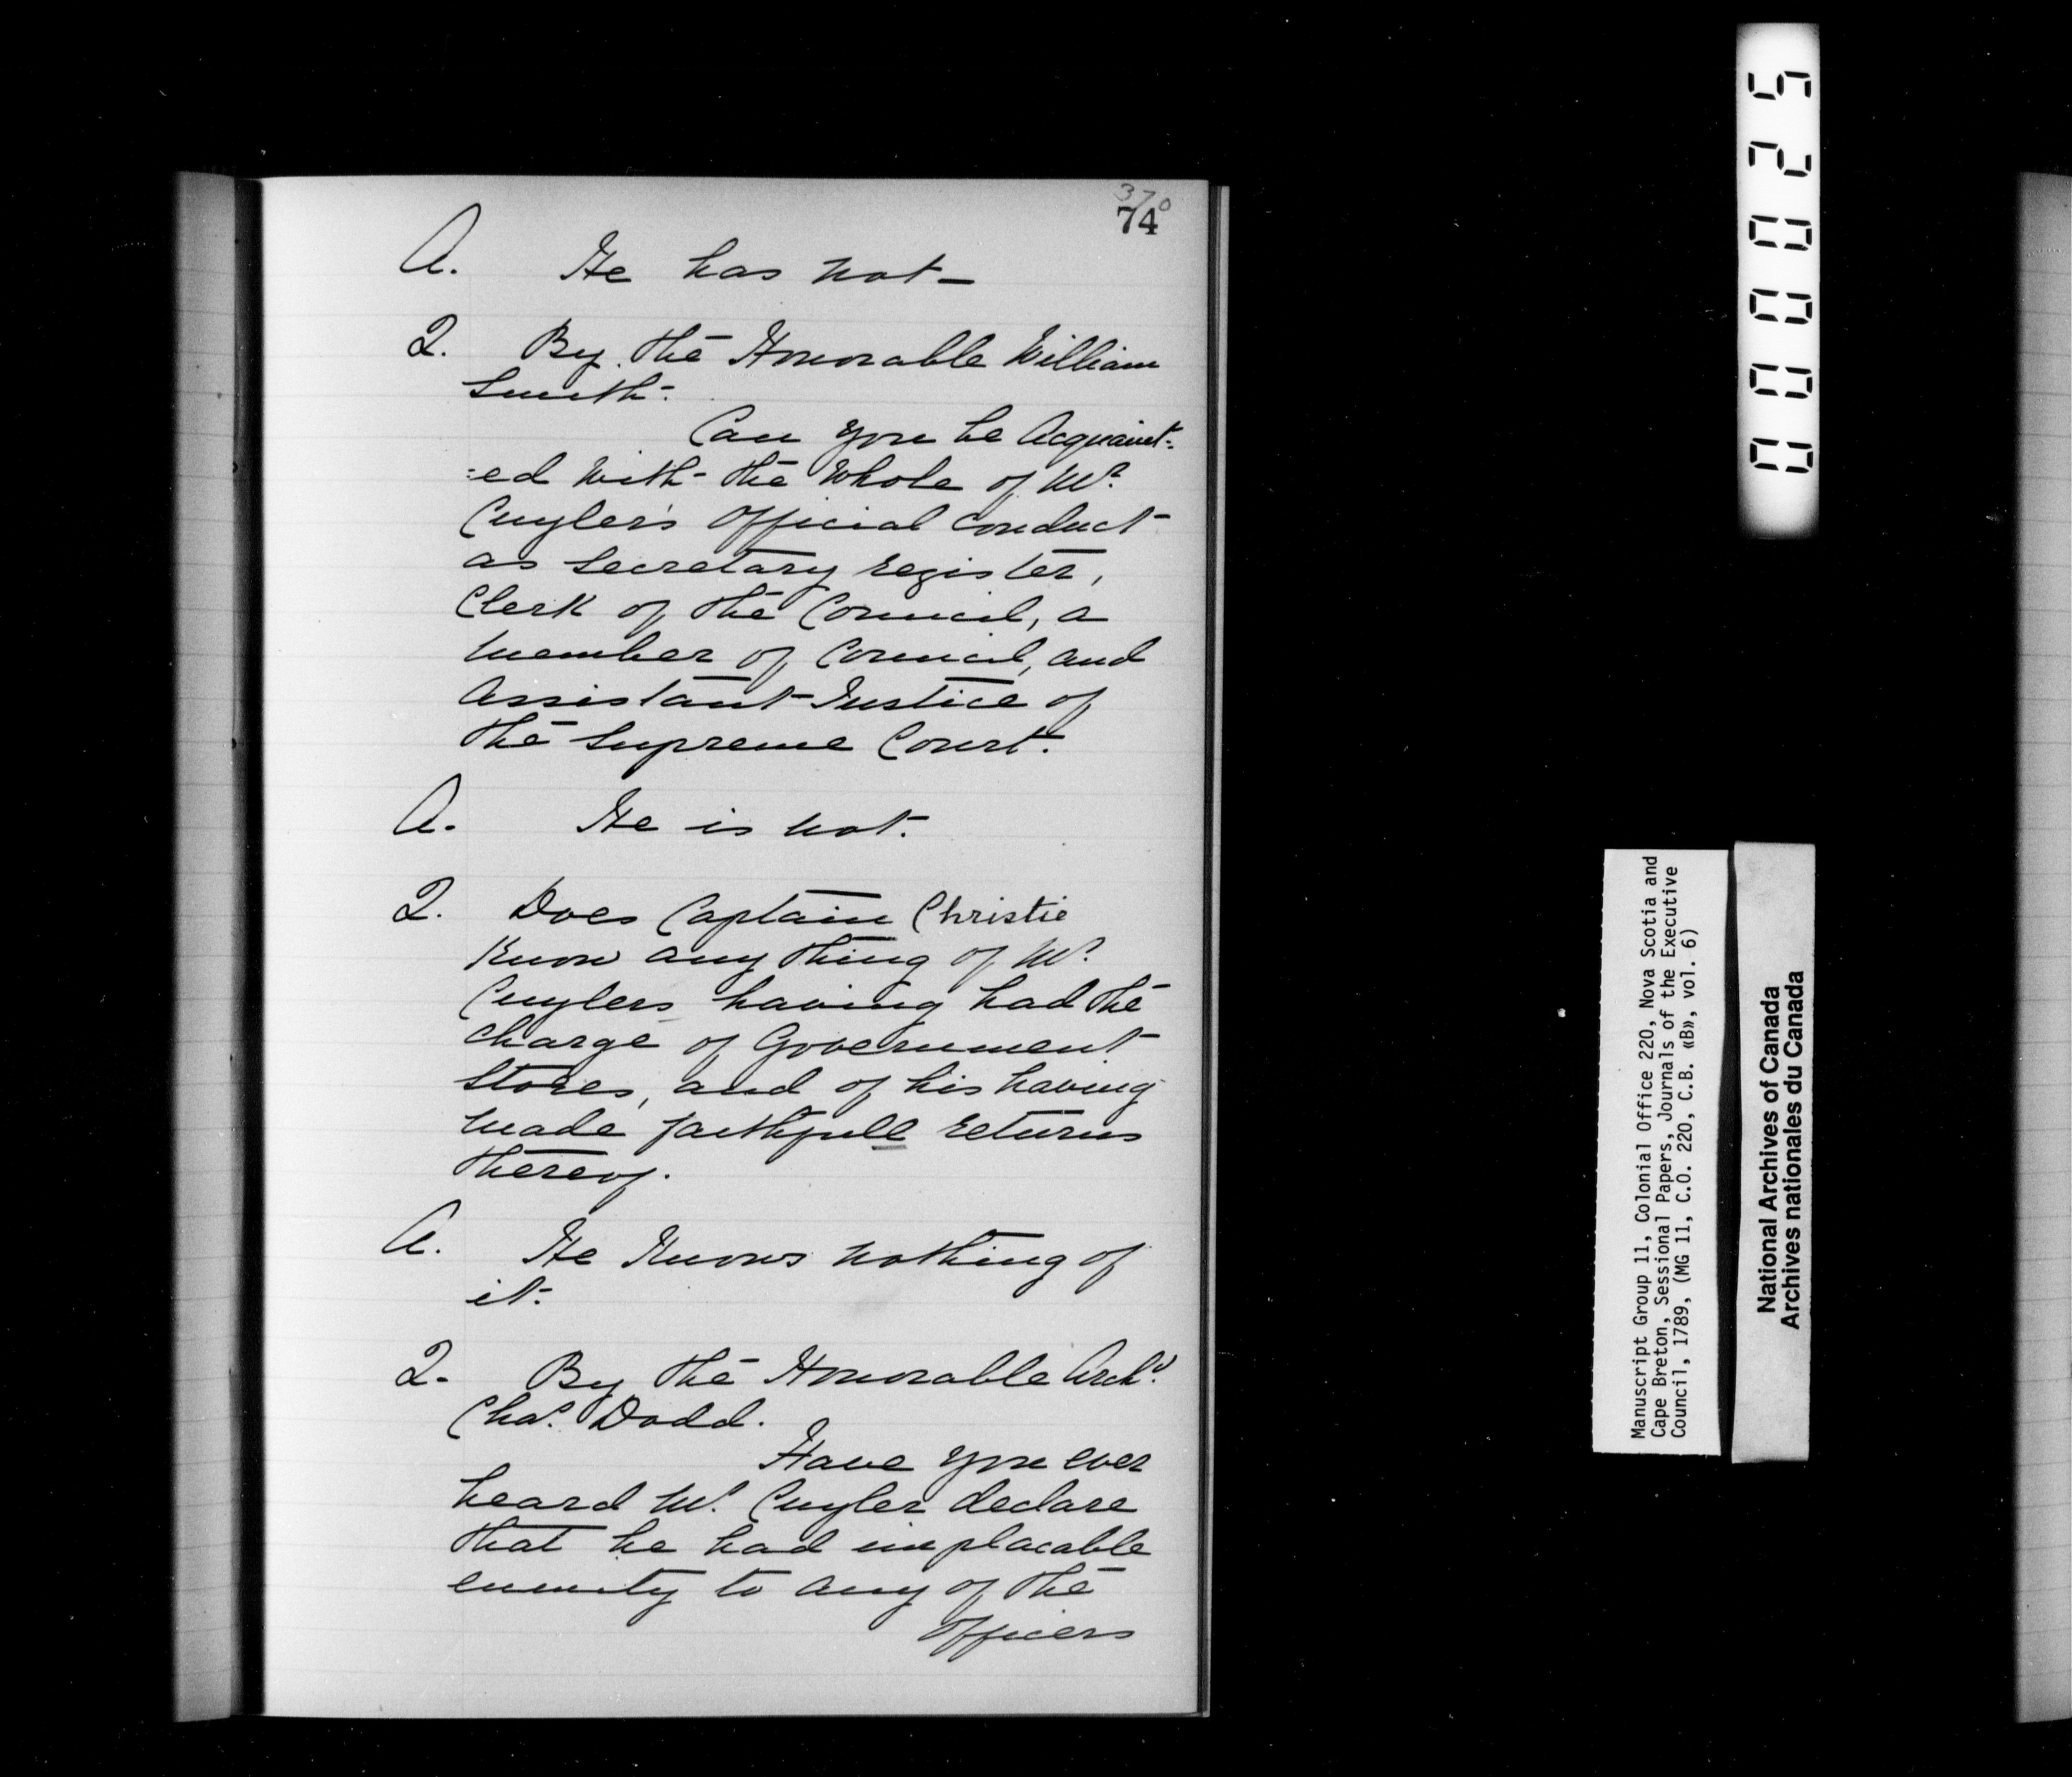 370
74
A. He has not-
Q. By the Honorable William
Smith-
Can you be Acquaint=
=ed with the Whole of Mr.
Cuyler's Official Conduct
as Secretary Register,
Clerk of the Council, a
Member of Council, and
Assistant Justice of
the Supreme Court.
A. He is not.
Q. Does Captain Christie
Know any thing of Mr.
Cuylers having had the
charge of Government
Stores, and of his having
made faithfull returns
thereof.
A. He Knows nothing of
it.
Q. By the Honorable Archd.
Chas. Dodd.
Have you ever
heard Mr. Cuyler declare
that he had implacable
enmity to any of the
Officers
000025
Manuscript Group 11, Colonial Office 220, Nova Scotia and
Cape Breton, Sessional Papers, Journals of the Executive
Council, 1789, (MG 11, C.O. 220, C.B. «B», vol. 6)
National Archives of Canada
Archives nationales du Canada